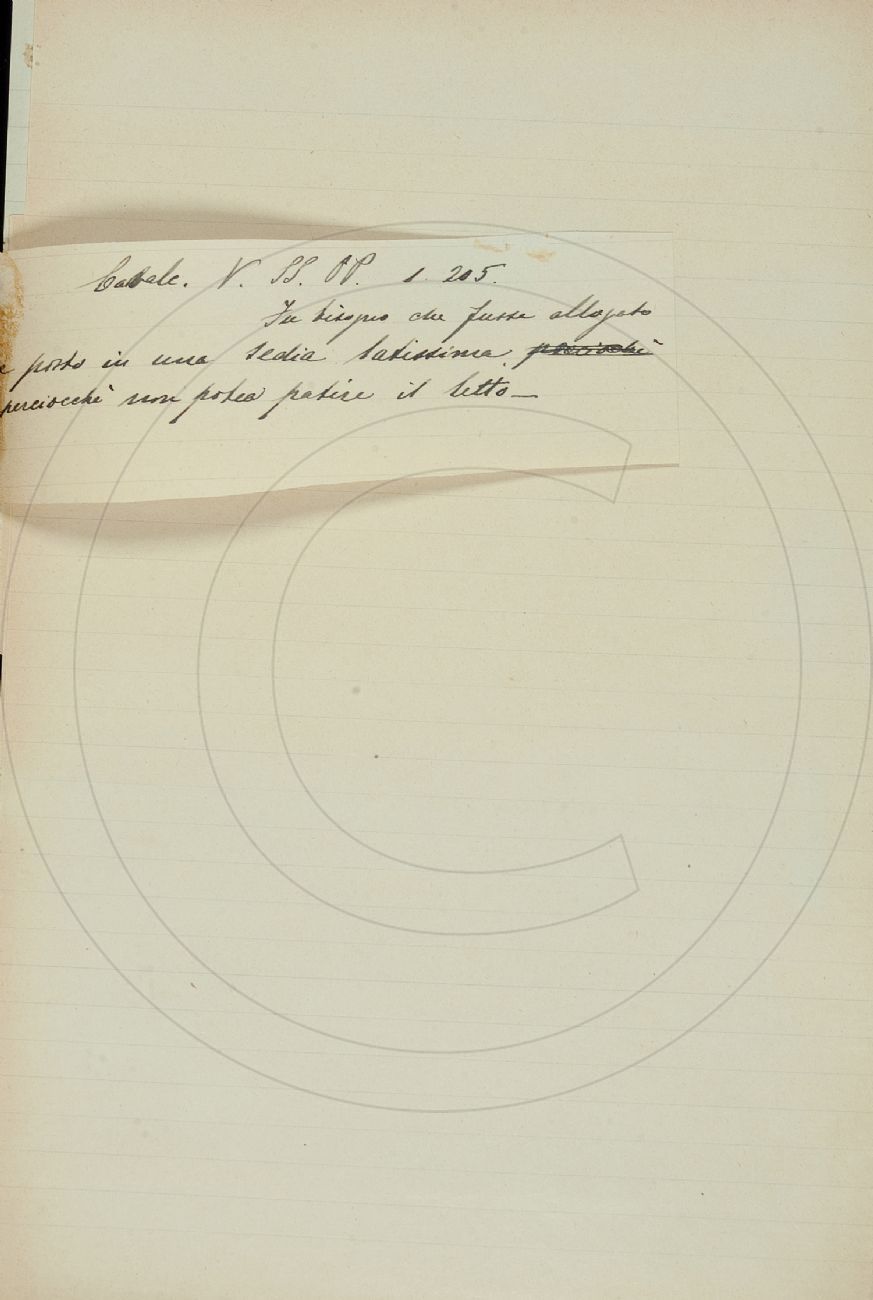 Cavalc. V. SS. PP. 1. 205.
Fu bisogno che fusse allogato
e posto in una sedia latissima perciocchè
perciocchè non potea patire il letto_